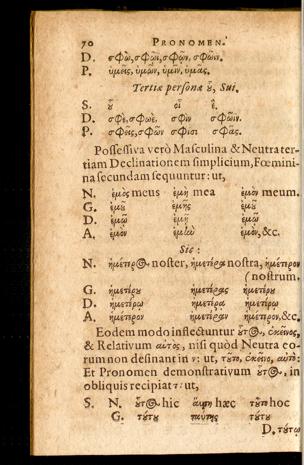 70 PRONOMEN.
D. σφῶ, σφῶϊ, σφῶϊν, σφῶιν.
P. ὑμεῖς, ὑμῶν, ὑμῖν, ὑμᾶς.
Tertiæ personæ οὗ, Sui.
S. οὗ οἷ ἕ.
D. σφὲ, σφωὲ, σφὶν σφῶιν.
P. σφεῖς, σφῶν σφίσι σφᾶς.
Possessiva verò Masculina & Neutra ter-
tiam Declinationem simplicium, Fœmini-
na secundam sequuntur: ut,
N. ἐμὸς meus ἐμὴ mea ἐμὸν meum.
G. ἐμοῦ ἐμῆς ἐμοῦ
D. ἐμῷ ἐμῇ ἐμῷ
A. ἐμὸν ἐμὴν ἐμὸν, &c.
Sic:
N. ἡμέτερος noster, ἡμετέρα nostra, ἡμέτερον
(nostrum.
G. ἡμετέρου ἡμετέρας ἡμετέρου
D. ἡμετέρῳ ἡμετέρᾳ ἡμετέρῳ
A. ἡμέτερον ἡμετέραν ἡμέτερον, &c.
Eodem modo inflectuntur οὗτος, ἐκεῖνος,
& Relativum αὐτὸς, nisi quòd Neutra eo-
rum non desinant in ν: ut, τοῦτο, ἐκεῖνο, αὐτὸ:
Et Pronomen demonstrativum οὗτος, in
obliquis recipiat τ: ut,
S. N. οὗτος hic αὕτη hæc τοῦτο hoc
G. τούτου ταύτης τούτου
D. τούτῳ